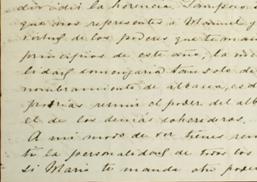 dió la herencia. Tampoco
que nos represente á Manuel y
virtud de los poderes que te man
principios de este año, la vi
tan solo de
nombramiento de albacea, es d
podrias reunir el poder del alb
el de los demás coherederos.
A mi modo de ver tienes
tu la personalidad de todos los
si Maria te manda otro poder